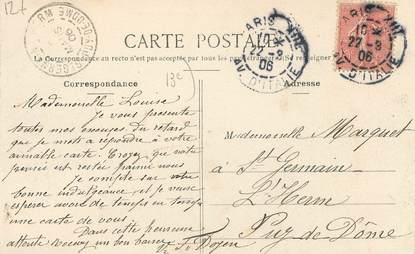 12f
CARTE POSTALE
La correspondance au recto n'est pas acceptée par tous les pays étrangers.
Correspondance
Adresse
13c
PARIS XIII
AV. D'ITALIE
22 -9
06
PARIS XIII
22 -9
06
AV. D'ITALIE
PUY-DE-DOME
Mademoiselle Louise
Je vous présente
toutes mes excuses du retard
que je mets a répondre à votre
aimable carte. Croyez que votre
pensée est restée parmi nous
Je compte sur votre
bonne indulgence et je veux
espérer avoir de temps en temps
une carte de vous.
Dans cette heureuse
attente recevez un bon baiser
Doyen
Mademoiselle Marquet
à St Germain
L'Herm
Puy de Dôme